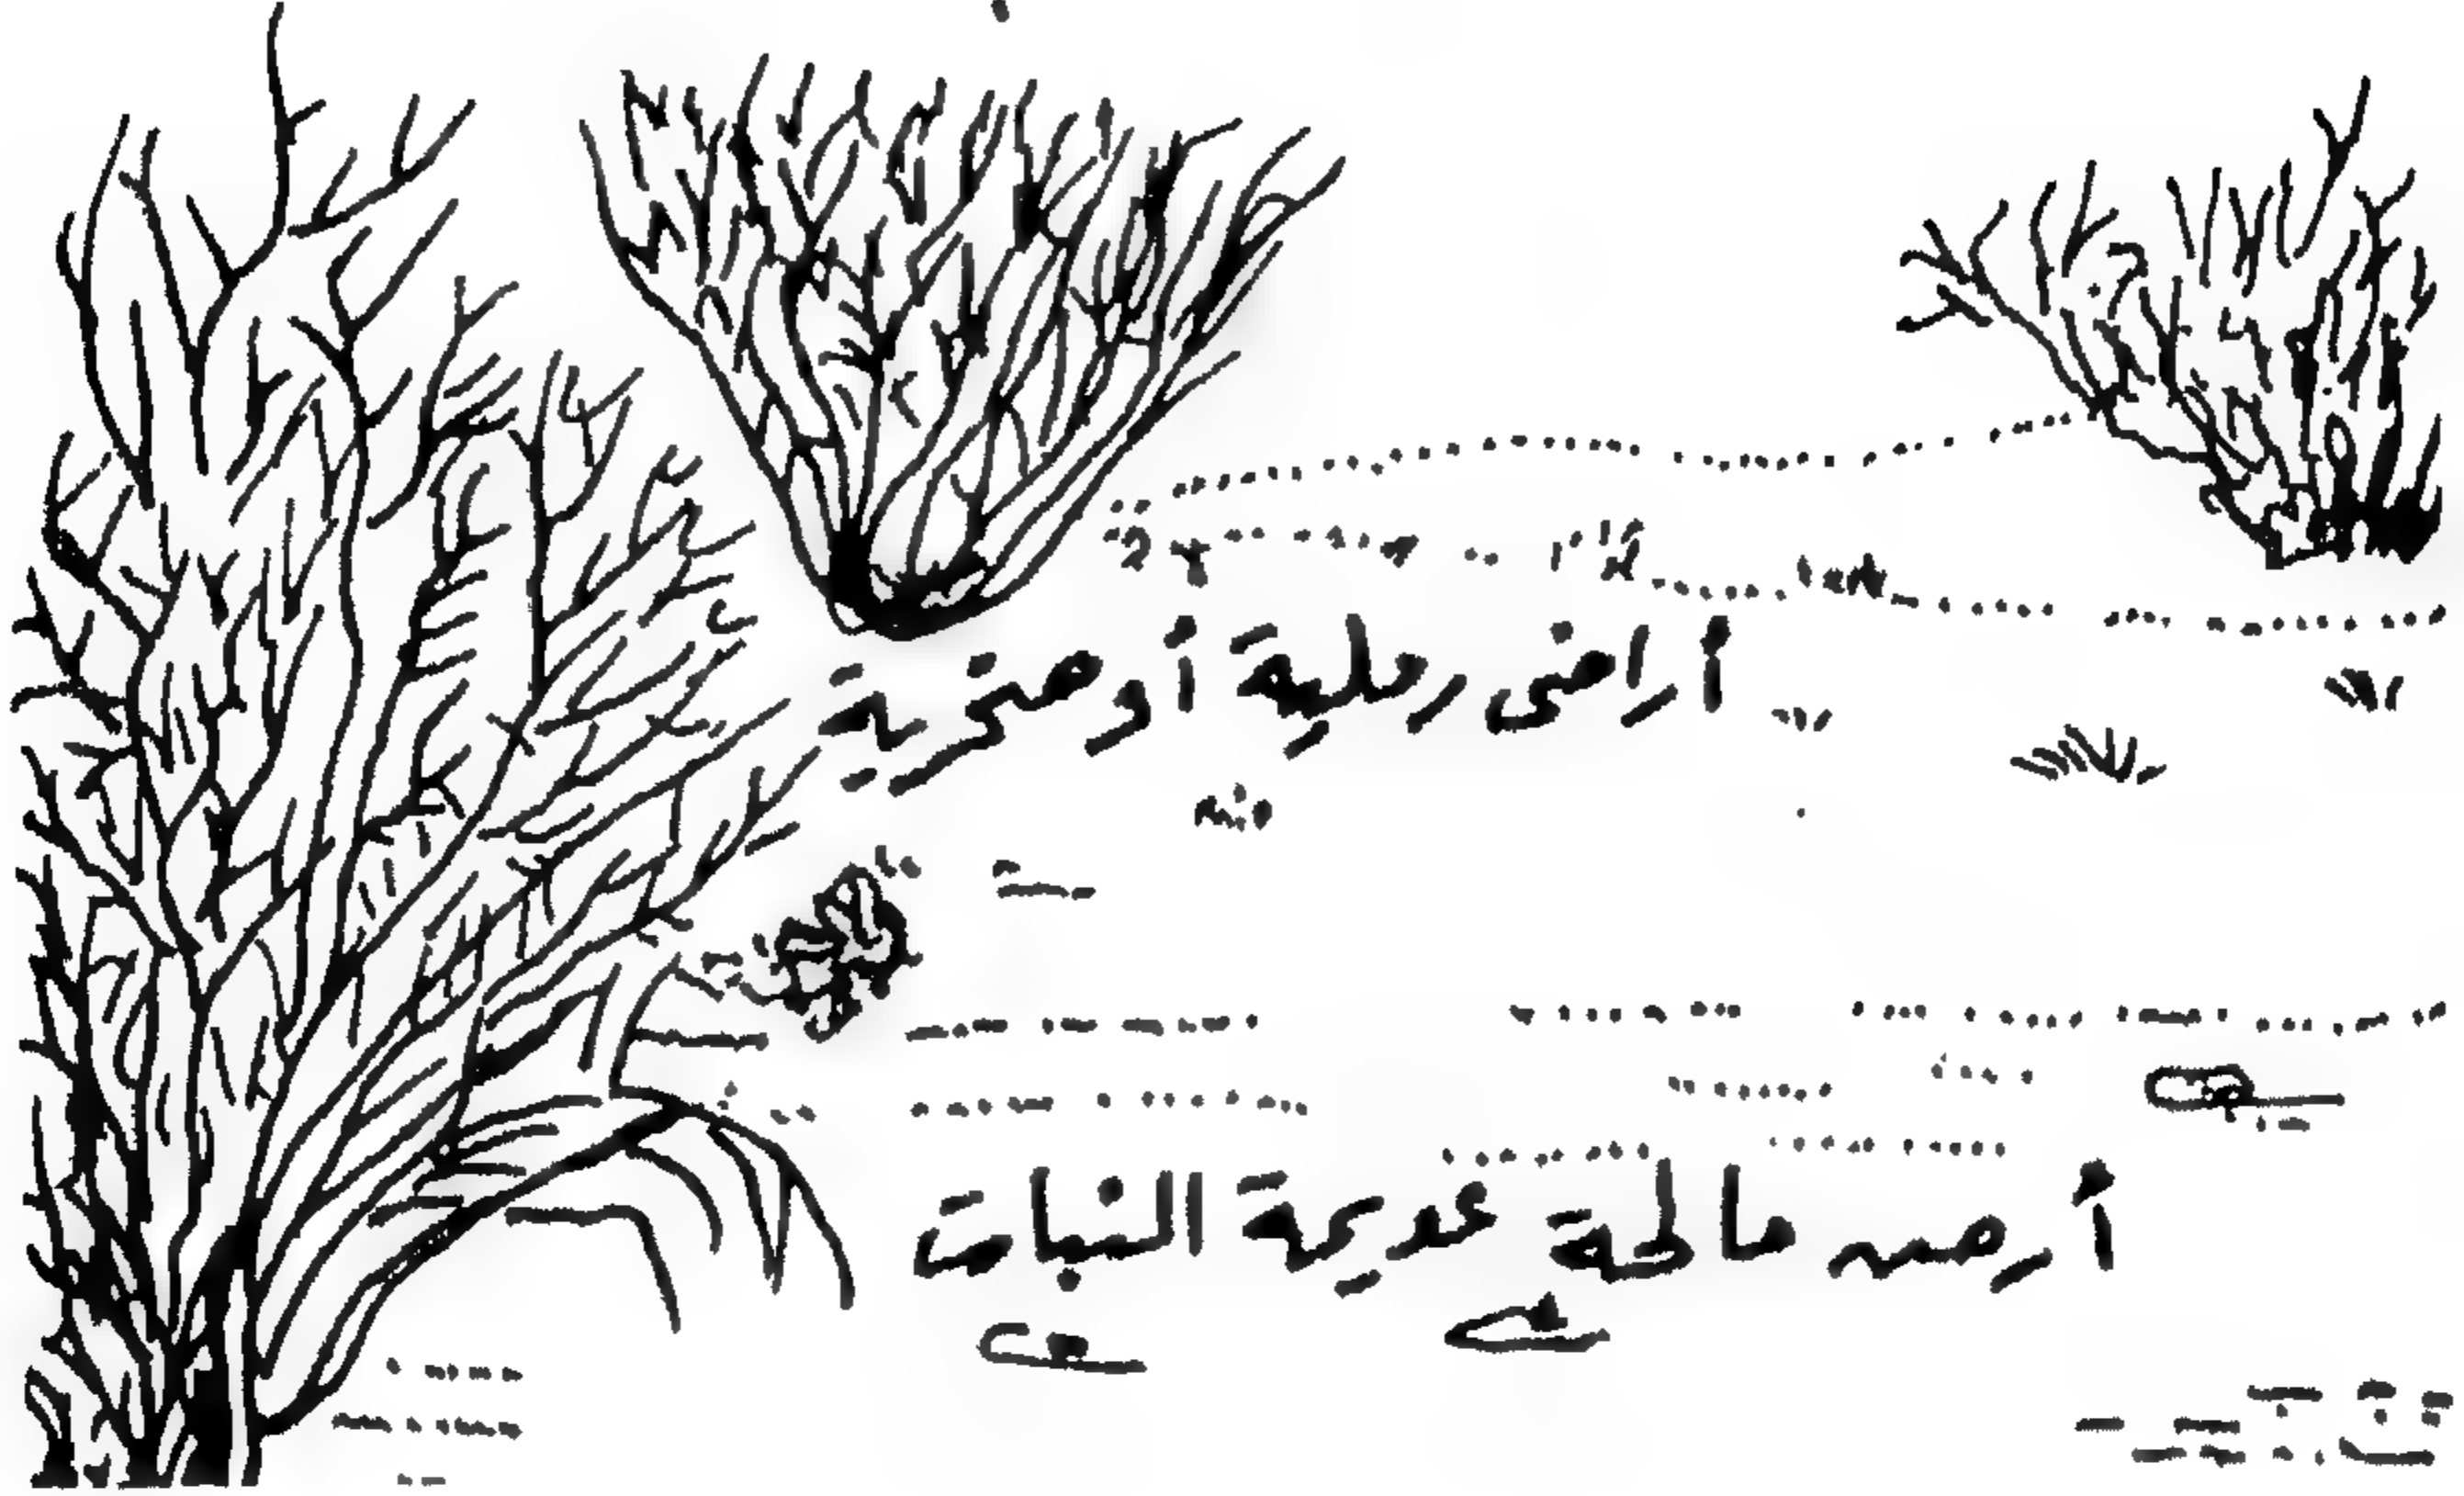 أراضى رملية أو صخرية
أرضه مالحة عديمة النبات